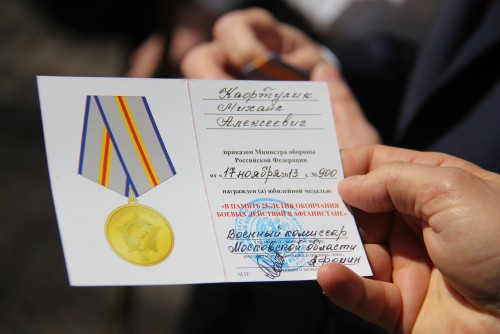 Кафтулин
Михаил
Алексеевич
приказом Министра обороны
Российской Федерации
от « 17 ноября 2013 г. № 900
награжден (а) юбилейной медалью
«В ПАМЯТЬ 25-ЛЕТИЯ ОКОНЧАНИЯ
БОЕВЫХ ДЕЙСТВИЙ В АФГАНИСТАНЕ»
Военный комиссар
Московской области
Афонин
М.П.